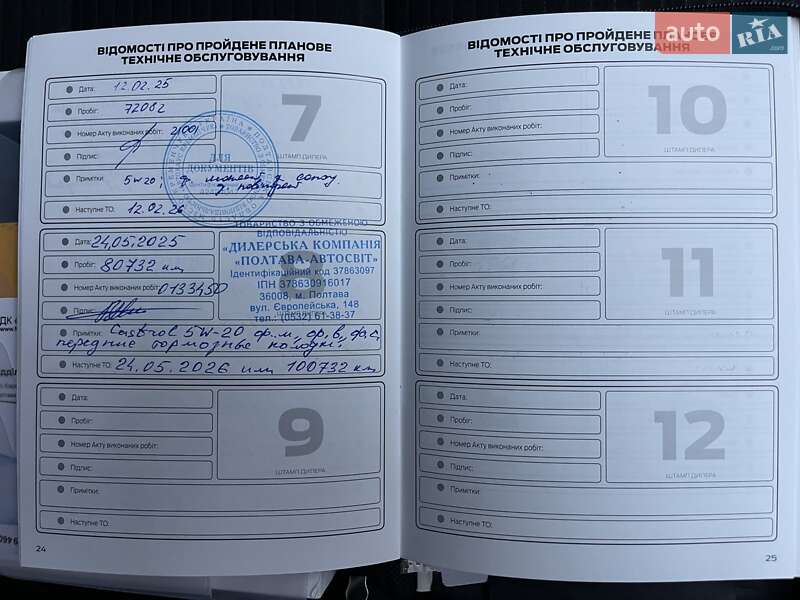 ВІДОМОСТІ ПРО ПРОЙДЕНЕ ПЛАНОВЕ
ТЕХНІЧНЕ ОБСЛУГОВУВАННЯ
Дата: 12.02.25
Пробіг: 72082
Номер Акту виконаних робіт: 21001
Підпис:
Примітки: 5w20,
Наступне ТО: 12.02.26
7
ШТАМП ДИЛЕРА
ДЛЯ
ДОКУМЕНТІВ
Дата: 24.05.2025
Пробіг: 80732 км
Номер Акту виконаних робіт: 0133450
Підпис:
Примітки: Castrol 5W-20 ф.м, ф,в, ф.с,
передние тормозные колодки.
Наступне ТО: 24.05.2026 или 100732 км
8
ТОВАРИСТВО З ОБМЕЖЕНОЮ
ВІДПОВІДАЛЬНІСТЮ
«ДИЛЕРСЬКА КОМПАНІЯ
«ПОЛТАВА-АВТОСВІТ»
Ідентифікаційний код 37863097
ІПН 378630916017
36008, м. Полтава
вул. Європейська, 148
тел.: (0532) 61-38-37
Дата:
Пробіг:
Номер Акту виконаних робіт:
Підпис:
Примітки:
Наступне ТО:
9
ШТАМП ДИЛЕРА
24
ВІДОМОСТІ ПРО ПРОЙДЕНЕ
ТЕХНІЧНЕ ОБСЛУГОВУВАННЯ
Дата:
Пробіг:
Номер Акту виконаних робіт:
Підпис:
Примітки:
Наступне ТО:
10
ШТАМП ДИЛЕРА
Дата:
Пробіг:
Номер Акту виконаних робіт:
Підпис:
Примітки:
Наступне ТО:
11
ШТАМП ДИЛЕРА
Дата:
Пробіг:
Номер Акту виконаних робіт:
Підпис:
Примітки:
Наступне ТО:
12
ШТАМП ДИЛЕРА
25
auto RIA.com